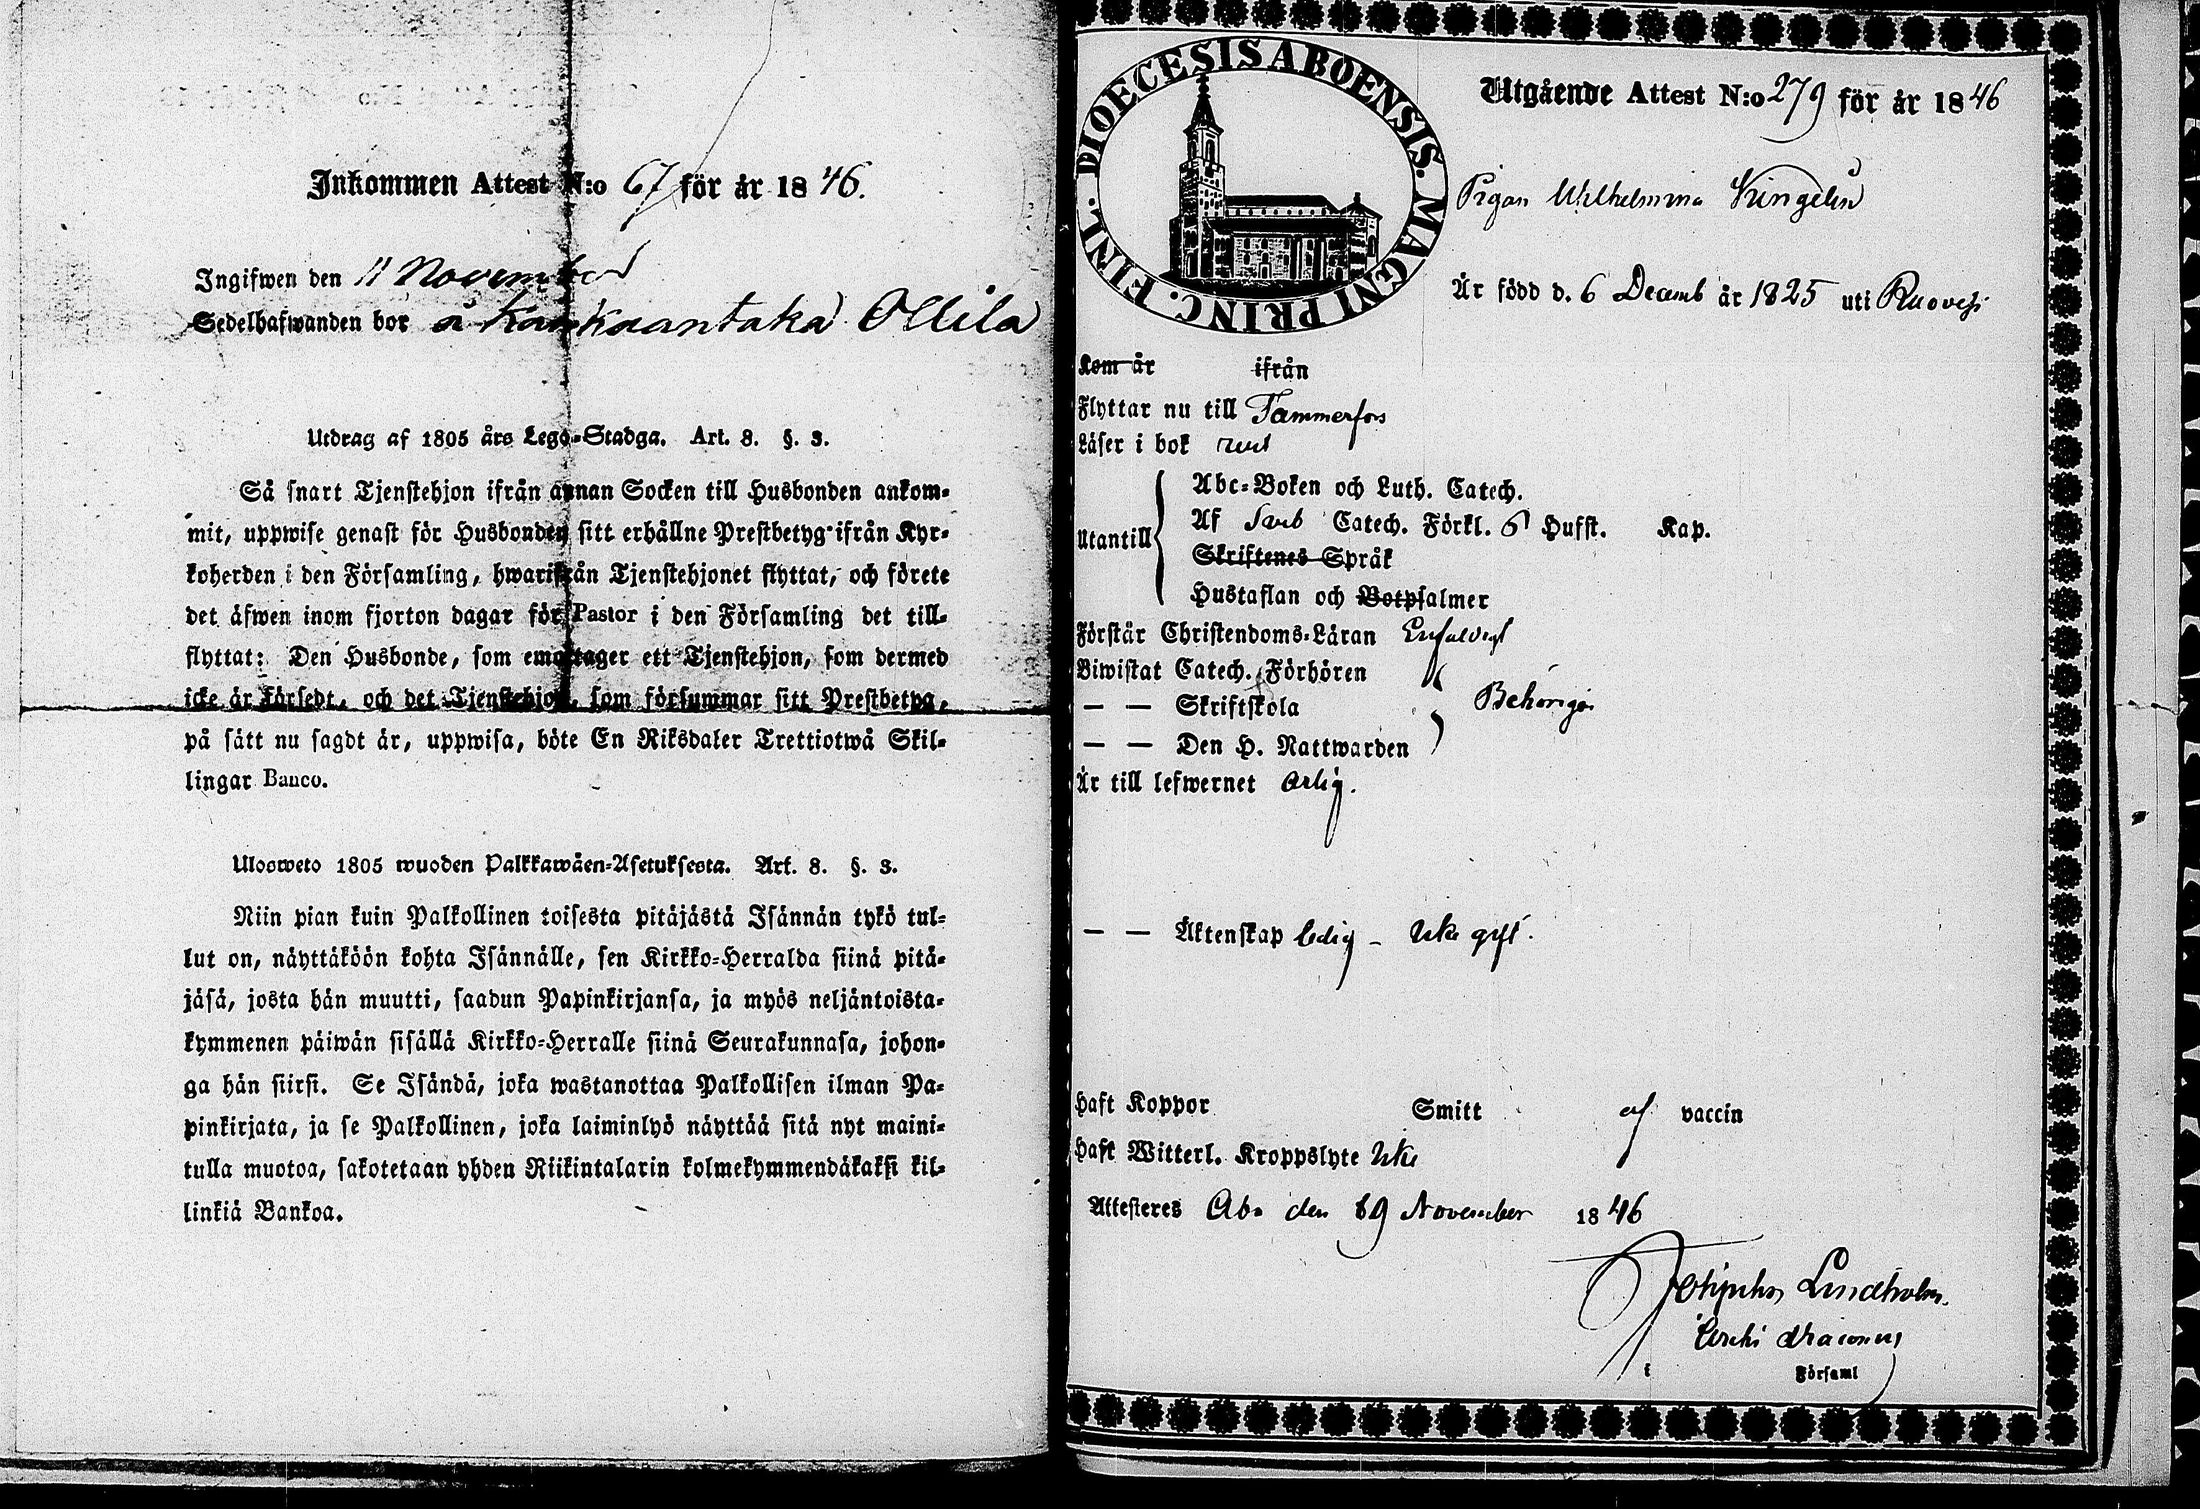 Inkommen Attest N:o 67 för år 1846.
Ingifwen den 11 November
Sedelhafwanden bor å Kankaantaka Ollila
Utdrag af 1805 års Lego-Stadga. Art. 8. §. 3.
Så snart Tjenstehjon ifrån annan Socken till Husbonden ankom-
mit, uppwise genast för Husbonden sitt erhållne Prestbetyg ifrån Kyr-
koherden i den Församling, hwarifrån Tjenstehjonet flyttat, och förete
det äfwen inom fjorton dagar för Pastor i den Församling det till-
flyttat: Den Husbonde, som emottager ett Tjenstehjon, som dermed
icke är försedt, och det Tjenstehjon, som försummar sitt Prestbetyg,
på sätt nu sagdt är, uppwisa, böte En Riksdaler Trettiotwå Skil-
lingar Banco.
Ulosweto 1805 wuoden Palkkawäen-Asetuksesta. Art. 8. §. 3.
Niin pian kuin Palkollinen toisesta pitäjästä Isännän tykö tul-
lut on, näyttäköön kohta Isännälle, sen Kirkko-Herralda siinä pitä-
jäsä, josta hän muutti, saadun Papinkirjansa, ja myös neljäntoista-
kymmenen päiwän sisällä Kirkko-Herralle siinä Seurakunnasa, johon-
ga hän siirsi. Se Isändä, joka wastanottaa Palkollisen ilman Pa-
pinkirjata, ja se Palkollinen, joka laiminlyö näyttää sitä nyt maini-
tulla muotoa, sakotetaan yhden Riikintalarin kolmekymmendäkaksi kil-
linkiä Bankoa.
DIOECESIS ABOENSIS. MAGNI PRINC. FINL.
Utgående Attest N:o 279 för år 1846
Pigan Wilhelmina Kingelin
Är född d. 6 Decemb år 1825 uti Ruovesi
Kom år ifrån
Flyttar nu till Tammerfors
Läser i bok rent
Utantill
Abc-Boken och Luth. Catech.
Af Sveb Catech. Förkl. 6 Hufst. Kap.
Skriftenes Språk
Hustaflan och Botpsalmer
Förstår Christendoms-Läran Enfaldigt
Biwistat Catech. Förhören
— — Skriftskola Behörigen
— — Den H. Nattwarden
Är till lefwernet ärlig.
— — Äktenskap ledig – icke gift.
Haft Koppor Smitt af vaccin
Haft Witterl. Kroppslyte icke
Attesteres Åbo den 19 November 1846
Lindholm.
Archi diaconus
i Församl